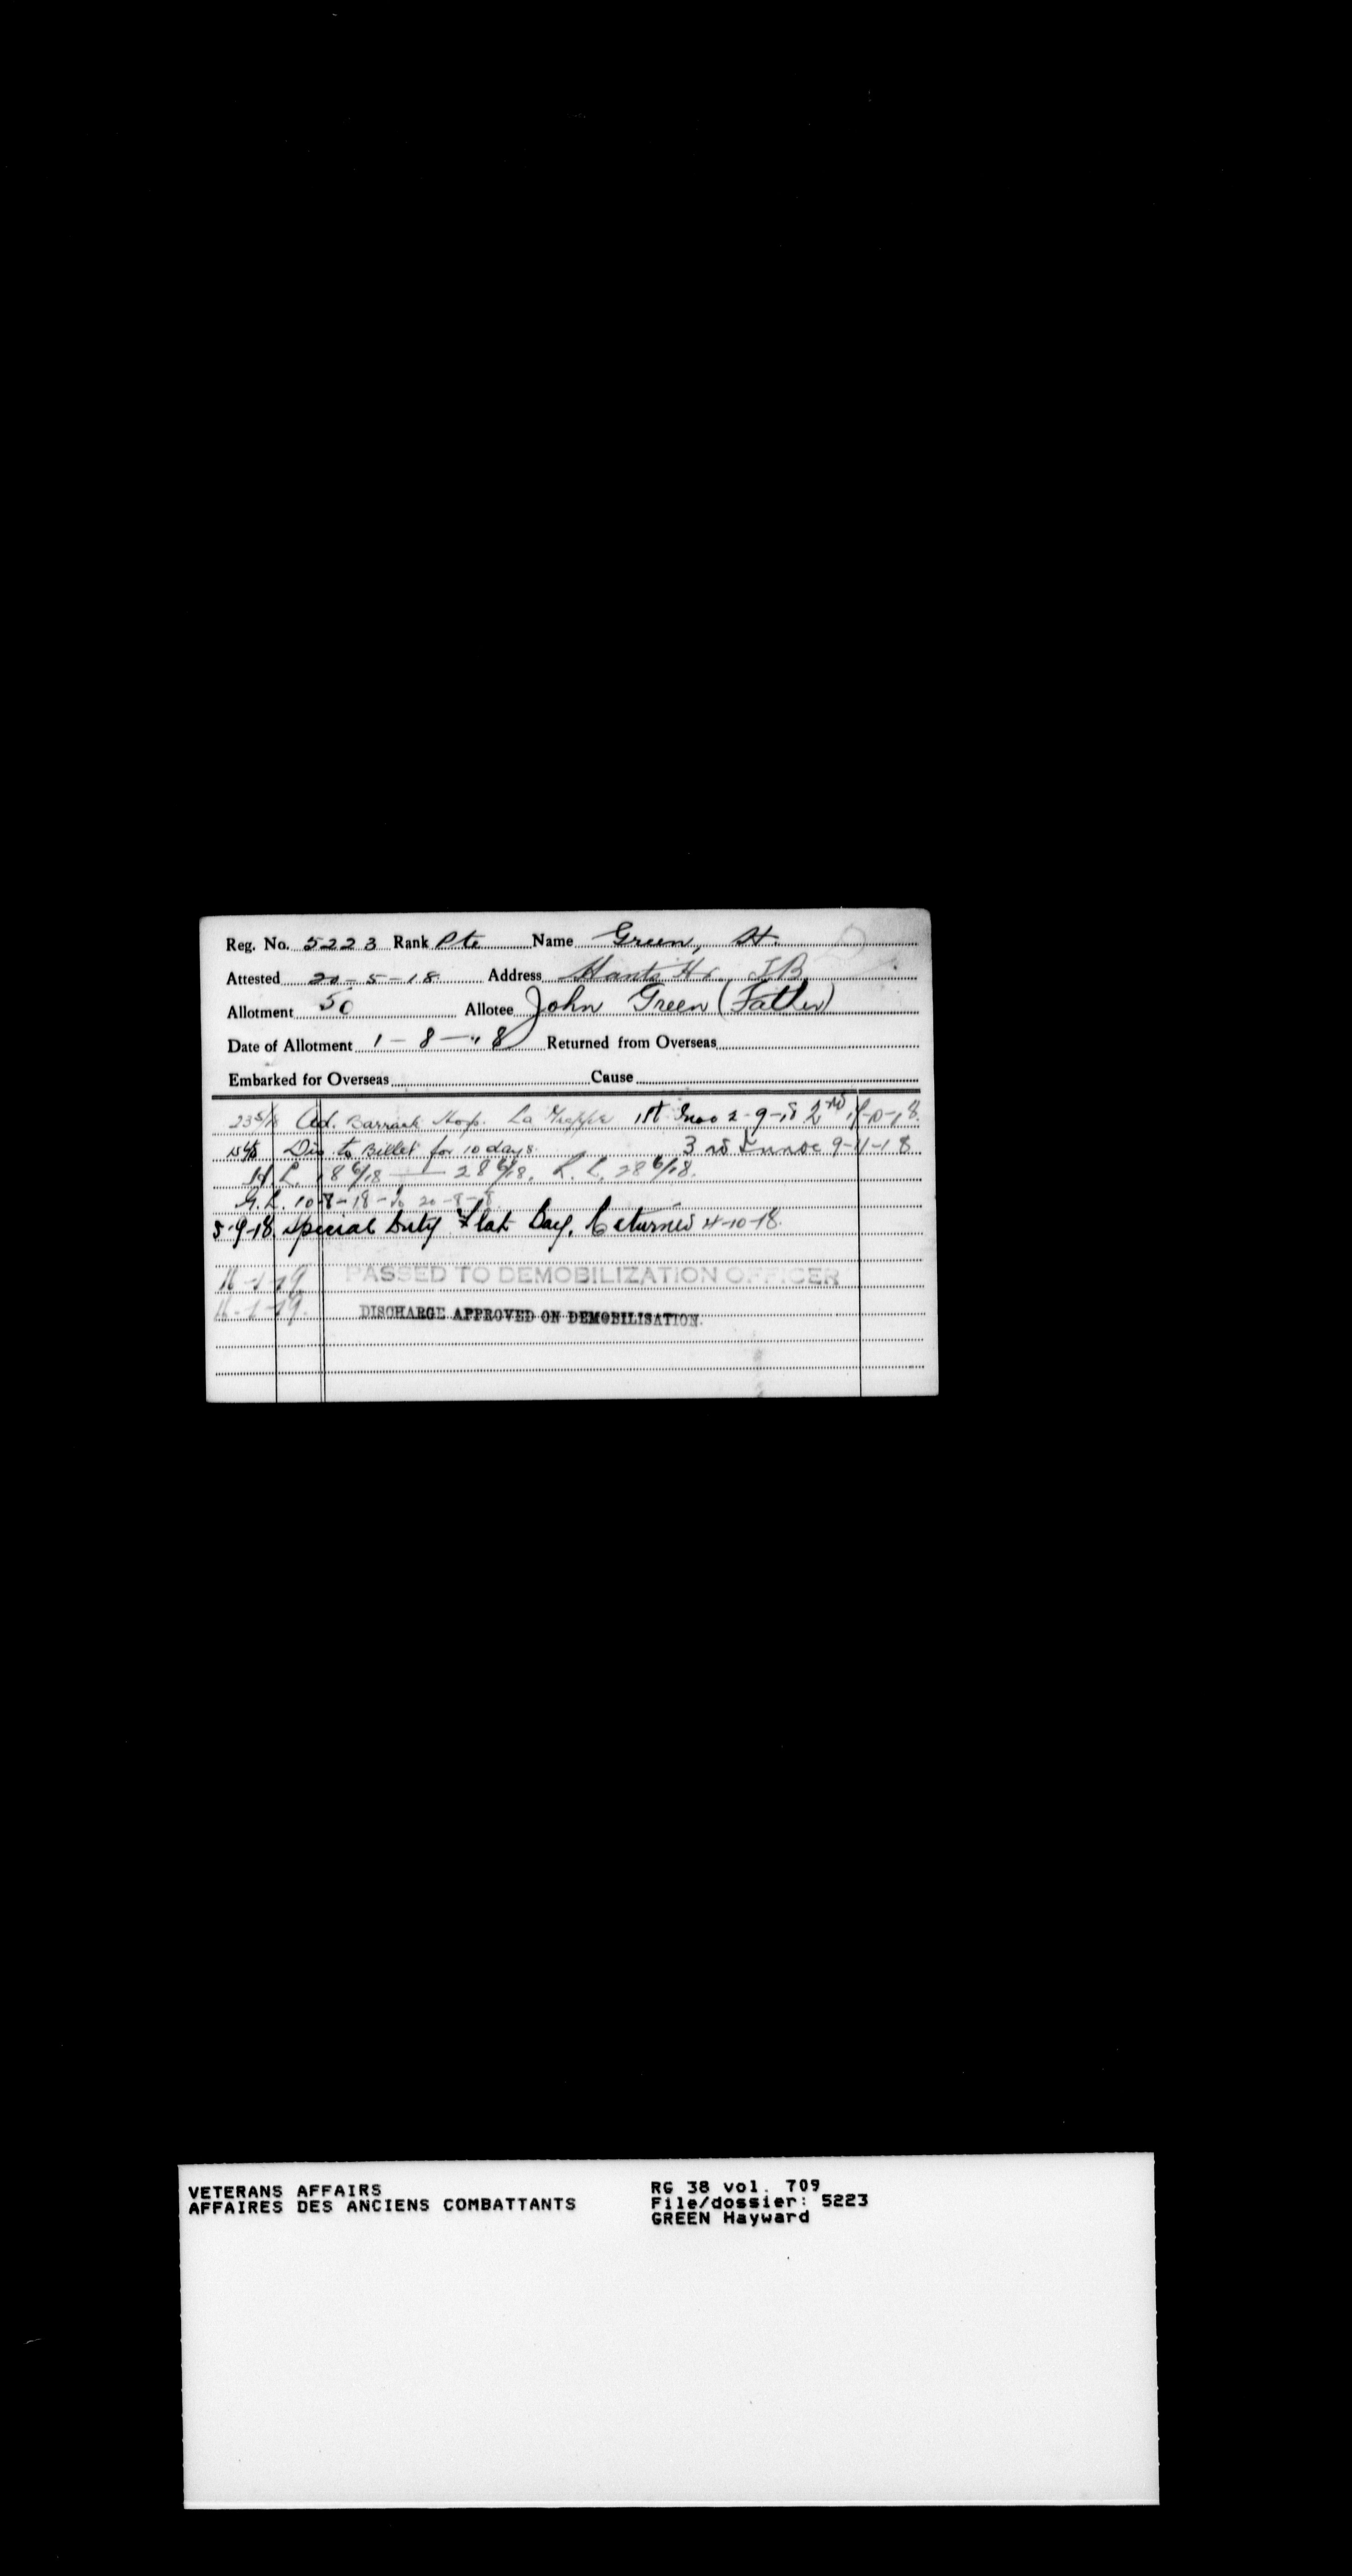 Reg. No. 5223 Rank Pte Name Green, H.
Attested 20-5-18 Address Hants Hr. T.B.
Allotment 50 Allotee John Green (Father)
Date of Allotment 1-8-18 Returned from Overseas
Embarked for Overseas Cause
23 5/18 Ad. Barrack Hosp. La Grippe 1st Innoc 2-9-18 2nd
Dis to Billet for 10 days. 3rd Innoc 9-11-18
L. 18 6/18 — 28 6/18. R.L. 28 6/18.
10-8-18 - to 20-8-18
5-9-18 Special Duty Flat Bay. Returned 4-10-18.
16-1-19 PASSED TO DEMOBILIZATION OFFICER
16-1-19. DISCHARGE APPROVED ON DEMOBILISATION.
VETERANS AFFAIRS RG 38 vol. 709
AFFAIRES DES ANCIENS COMBATTANTS File/dossier: 5223
GREEN Hayward